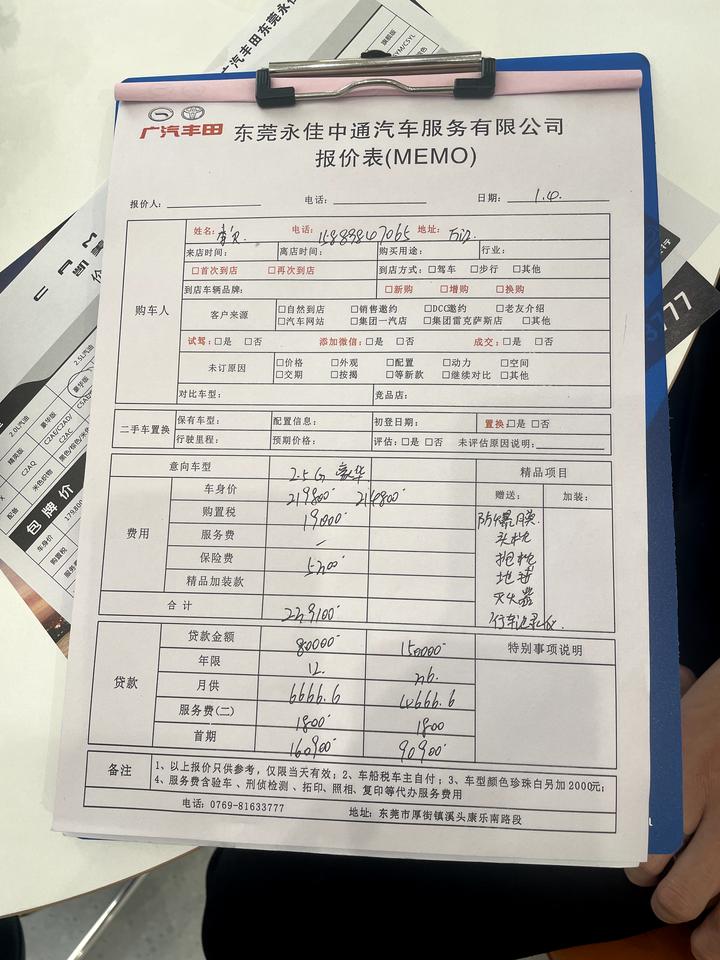 广汽丰田东莞永佳
广汽丰田 东莞永佳中通汽车服务有限公司
报价表(MEMO)
报价人: 电话: 日期: 1.4.
姓名: 电话: 地址: 万江
来店时间: 离店时间: 购买用途: 行业:
□首次到店 □再次到店 到店方式: □驾车 □步行 □其他
到店车辆品牌: □新购 □增购 □换购
购车人
客户来源
□自然到店 □销售邀约 □DCC邀约 □老友介绍
□汽车网站 □集团一汽店 □集团雷克萨斯店 □其他
试驾: □是 □否 添加微信: □是 □否 成交: □是 □否
未订原因
□价格 □外观 □配置 □动力 □空间
□交期 □按揭 □等新款 □继续对比 □其他
对比车型: 竞品店:
二手车置换
保有车型: 配置信息: 初登日期: 置换: □是 □否
行驶里程: 预期价格: 评估: □是 □否 未评估原因说明:
意向车型 2.5G 豪华 精品项目
费用
车身价 219800 214800 赠送: 加装:
购置税 19000 防爆膜
服务费 - 头枕
保险费 5300 抱枕
精品加装款 地毯
灭火器
合计 239100 行车记录仪
贷款
贷款金额 80000 150000 特别事项说明
年限 12 36
月供 6666.6 4666.6
服务费(二) 1800 1800
首期 160900 90900
备注
1、以上报价只供参考,仅限当天有效; 2、车船税车主自付; 3、车型颜色珍珠白另加2000元;
4、服务费含验车、刑侦检测、拓印、照相、复印等代办服务费用
电话: 0769-81633777 地址: 东莞市厚街镇溪头康乐南路段
3777
2.5L汽油
2.0L汽油
豪华版
精英版
C2AQ
C2AC
米色织物
配备
包牌价
车身价
购置税
旗舰版